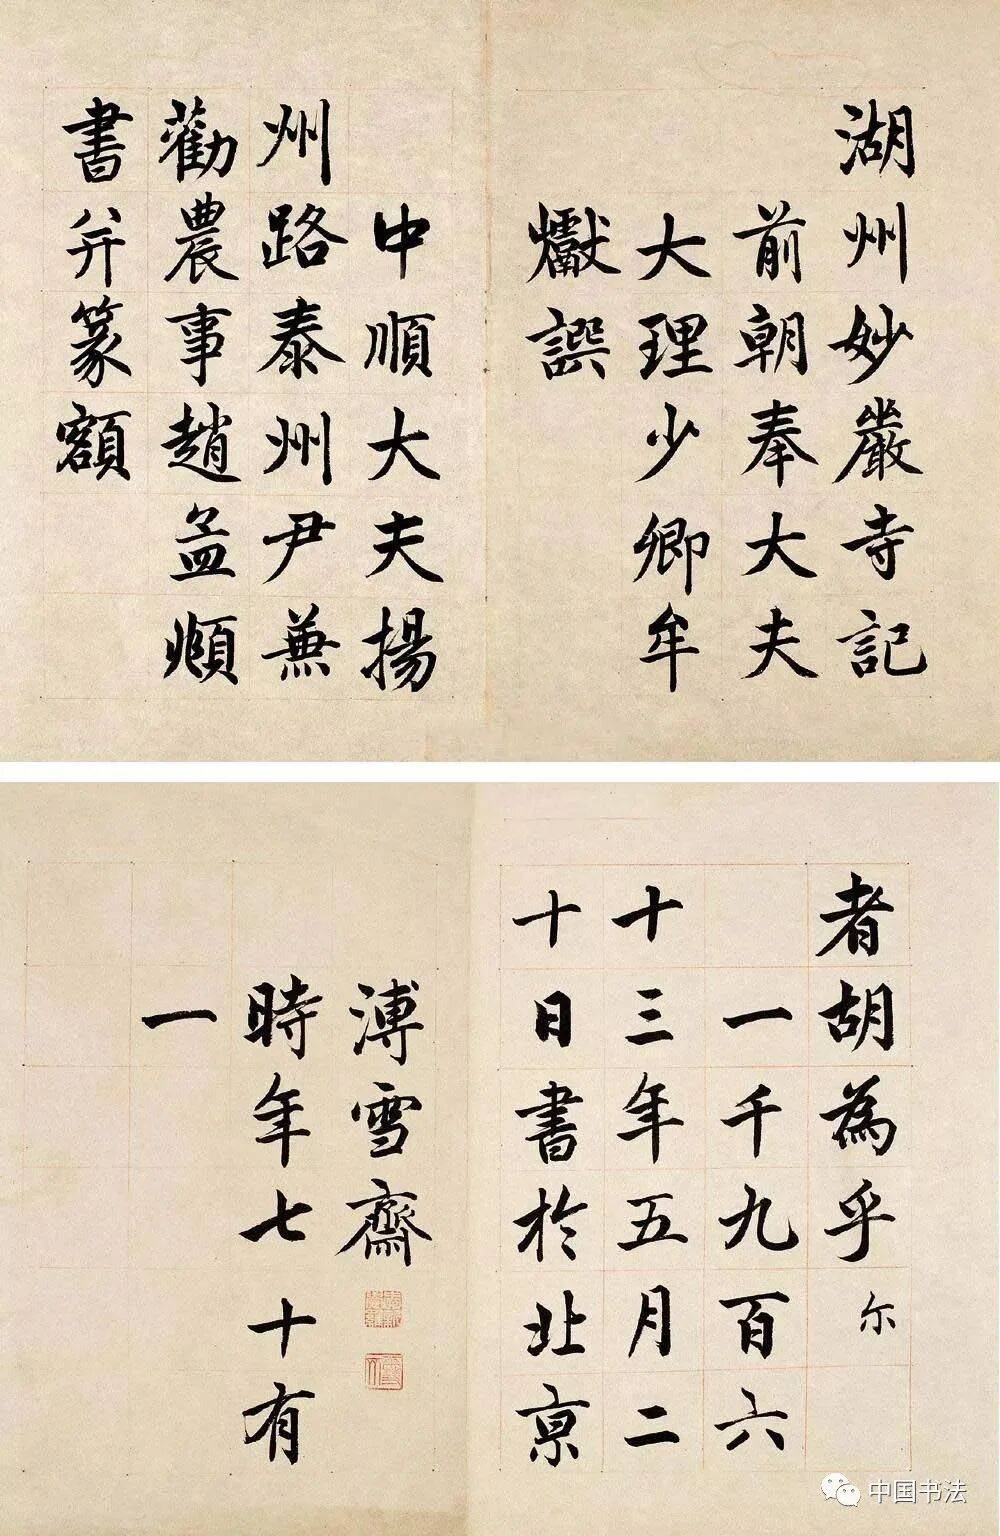 湖州妙嚴寺記
前朝奉大夫
大理少卿牟
巘譔
中順大夫揚
州路泰州尹兼
勸農事趙孟頫
書并篆額
者胡為乎
尓
一千九百六
十三年五月二
十日書於北京
溥雪齋
時年七十有
一
中国书法